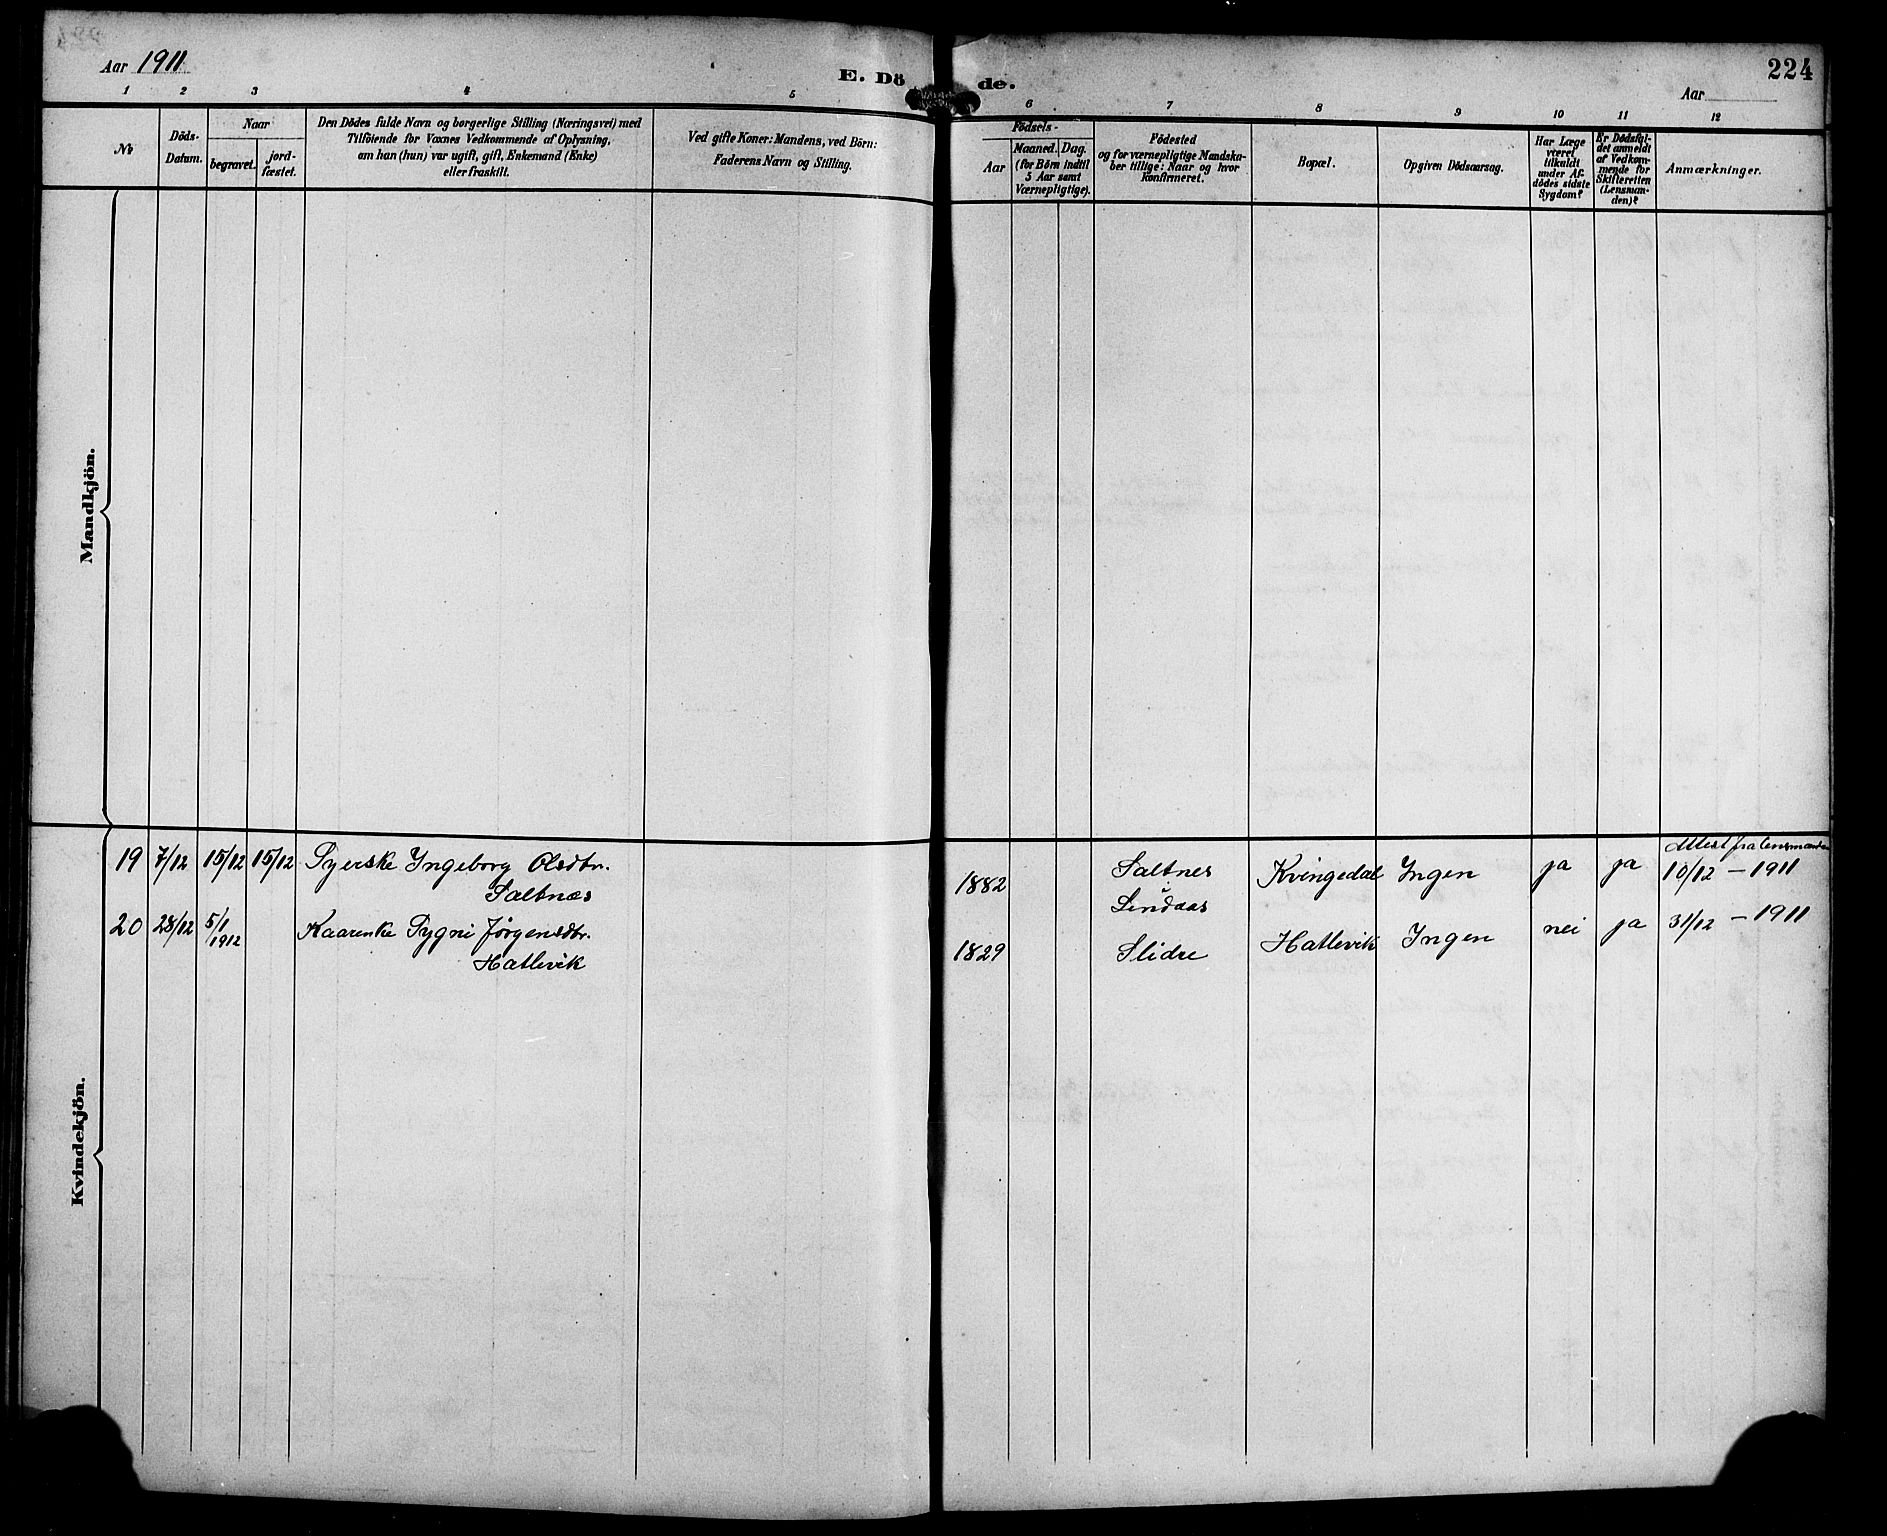 Aar 1911
E. Döde.
Aar
224
1 2 3 4 5 6 7 8 9 10 11 12
№
Döds-
Datum.
Naar
begravet.
jord-
fæstet.
Den Dödes fulde Navn og borgerlige Stilling (Næringsvei) med
Tilföiende for Voxnes Vedkommende af Oplysning,
om han (hun) var ugift, gift, Enkemand (Enke)
eller fraskilt.
Ved gifte Koner: Mandens, ved Börn:
Faderens Navn og Stilling.
Födsels-
Aar
Maaned. Dag.
(for Börn indtil
5 Aar samt
Værnepligtige).
Födested
og for værnepligtige Mandska-
ber tillige: Naar og hvor
konfirmeret.
Bopæl.
Opgiven Dödsaarsag.
Har Læge
været
tilkaldt
under Af-
dödes sidste
Sygdom?
Er Dödsfal-
det anmeldt
af Vedkom-
mende for
Skifteretten
(Lensman-
den)?
Anmærkninger.
Mandkjön.
Kvindekjön.
Attest fra lensmanden
19 7/12 15/12 15/12 Syerske Ingeborg Olsdtr. 1882 Saltnes Kvingedal Ingen ja ja 10/12 - 1911
Saltnæs Lindaas
20 28/12 5/1 Kaarenke Sygni Jørgensdtr. 1829 Slidre Hatlevik Ingen nei ja 31/12 - 1911
/1912 Hatlevik